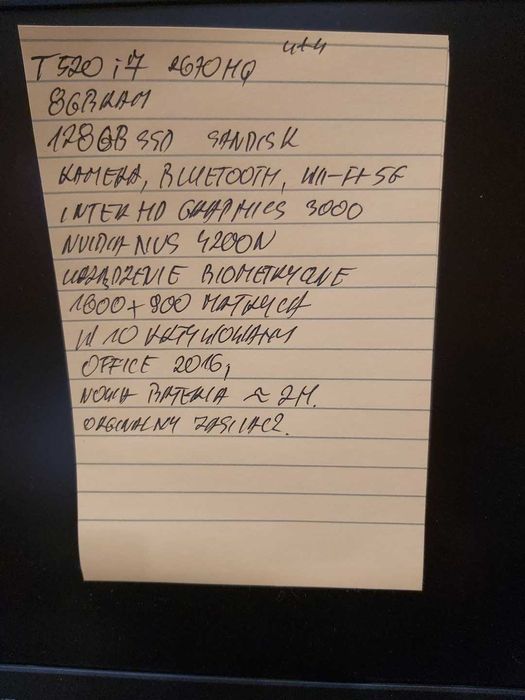 T520 i7 2670HQ 4x4
8GB RAM
128GB SSD SANDISK
KAMERA, BLUETOOTH, WI-FI 5G
INTER HD GRAPHICS 3000
NVIDIA NVS 4200N
URZĄDZENIE BIOMETRYCZNE
1600+900 MATRYCA
W10 AKTYWOWANY
OFFICE 2016,
NOWA BATERIA ≈ 2H.
ORGINALNY ZASILACZ.